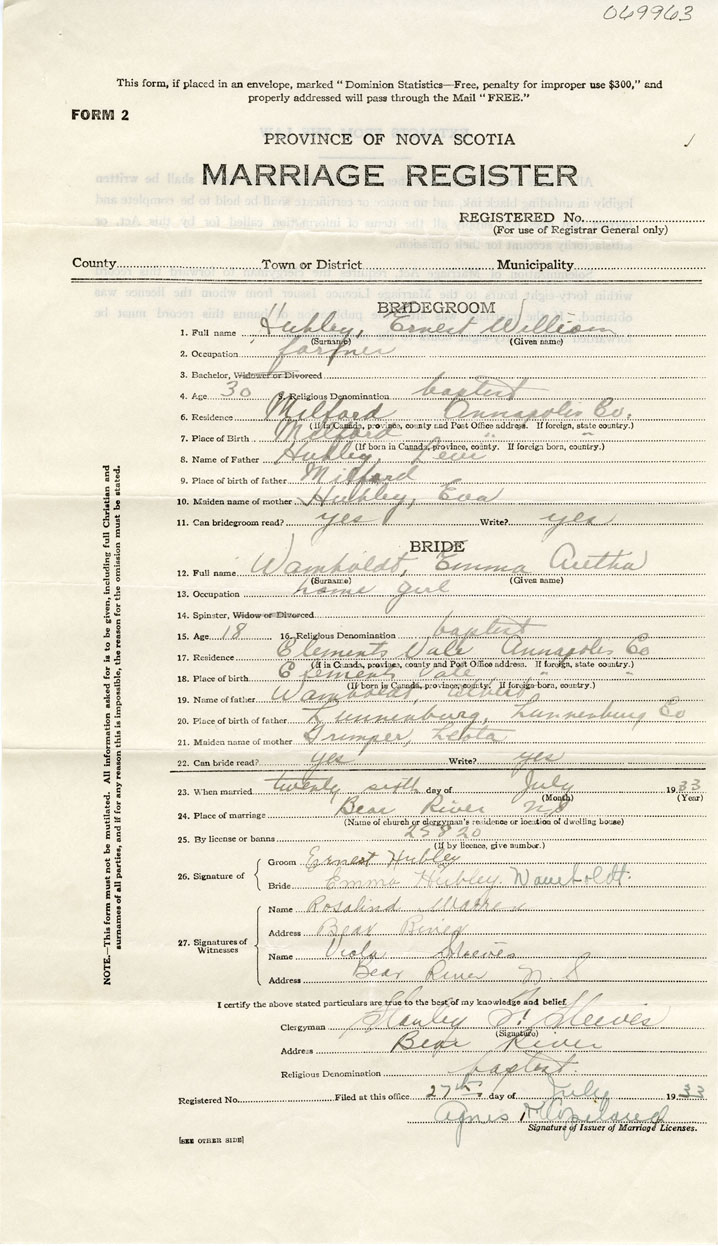 069963
This form, if placed in an envelope, marked "Dominion Statistics—Free, penalty for improper use $300," and
properly addressed will pass through the Mail "FREE."
FORM 2
PROVINCE OF NOVA SCOTIA
MARRIAGE REGISTER
REGISTERED No.
(For use of Registrar General only)
County Town or District Municipality
BRIDEGROOM
1. Full name Hubley, Ernest William
(Surname) (Given name)
2. Occupation farmer
3. Bachelor, Widower or Divorced
4. Age 30 5. Religious Denomination baptist
6. Residence Milford Annapolis Co.
(If in Canada, province, county and Post Office address. If foreign, state country.)
7. Place of Birth Milford " "
(If born in Canada, province, county. If foreign born, country.)
8. Name of Father Hubley, Levi
9. Place of birth of father Milford
10. Maiden name of mother Hubley, Eva
11. Can bridegroom read? yes Write? yes
BRIDE
12. Full name Wamboldt, Emma Aretha
(Surname) (Given name)
13. Occupation home girl
14. Spinster, Widow or Divorced
15. Age 18 16. Religious Denomination baptist
17. Residence Clements Vale Annapolis Co
(If in Canada, province, county and Post Office address. If foreign, state country.)
18. Place of birth Clements Vale " "
(If born in Canada, province, county. If foreign born, country.)
19. Name of father Wamboldt,
20. Place of birth of father Lunnenburg, Lunnenburg Co
21. Maiden name of mother Trimper,
22. Can bride read? yes Write? yes
23. When married twenty sixth day of July 1933
(Month) (Year)
24. Place of marriage Bear River NS
(Name of church or clergyman's residence or location of dwelling house)
25. By license or banns 25820
(If by licence, give number.)
26. Signature of Groom Ernest Hubley
Bride Emma Hubley. Wamboldt.
27. Signatures of Witnesses
Name Rosalind Warren
Address Bear River
Name Viola Steeves
Address Bear River N.S
I certify the above stated particulars are true to the best of my knowledge and belief
Clergyman Stanley S. Steeves
(Signature)
Address Bear River
Religious Denomination baptist.
Registered No. Filed at this office 27th day of July 1933
Agnes
Signature of Issuer of Marriage Licenses.
[SEE OTHER SIDE]
NOTE.—This form must not be mutilated. All information asked for is to be given, including full Christian and
surnames of all parties, and if for any reason this is impossible, the reason for the omission must be stated.